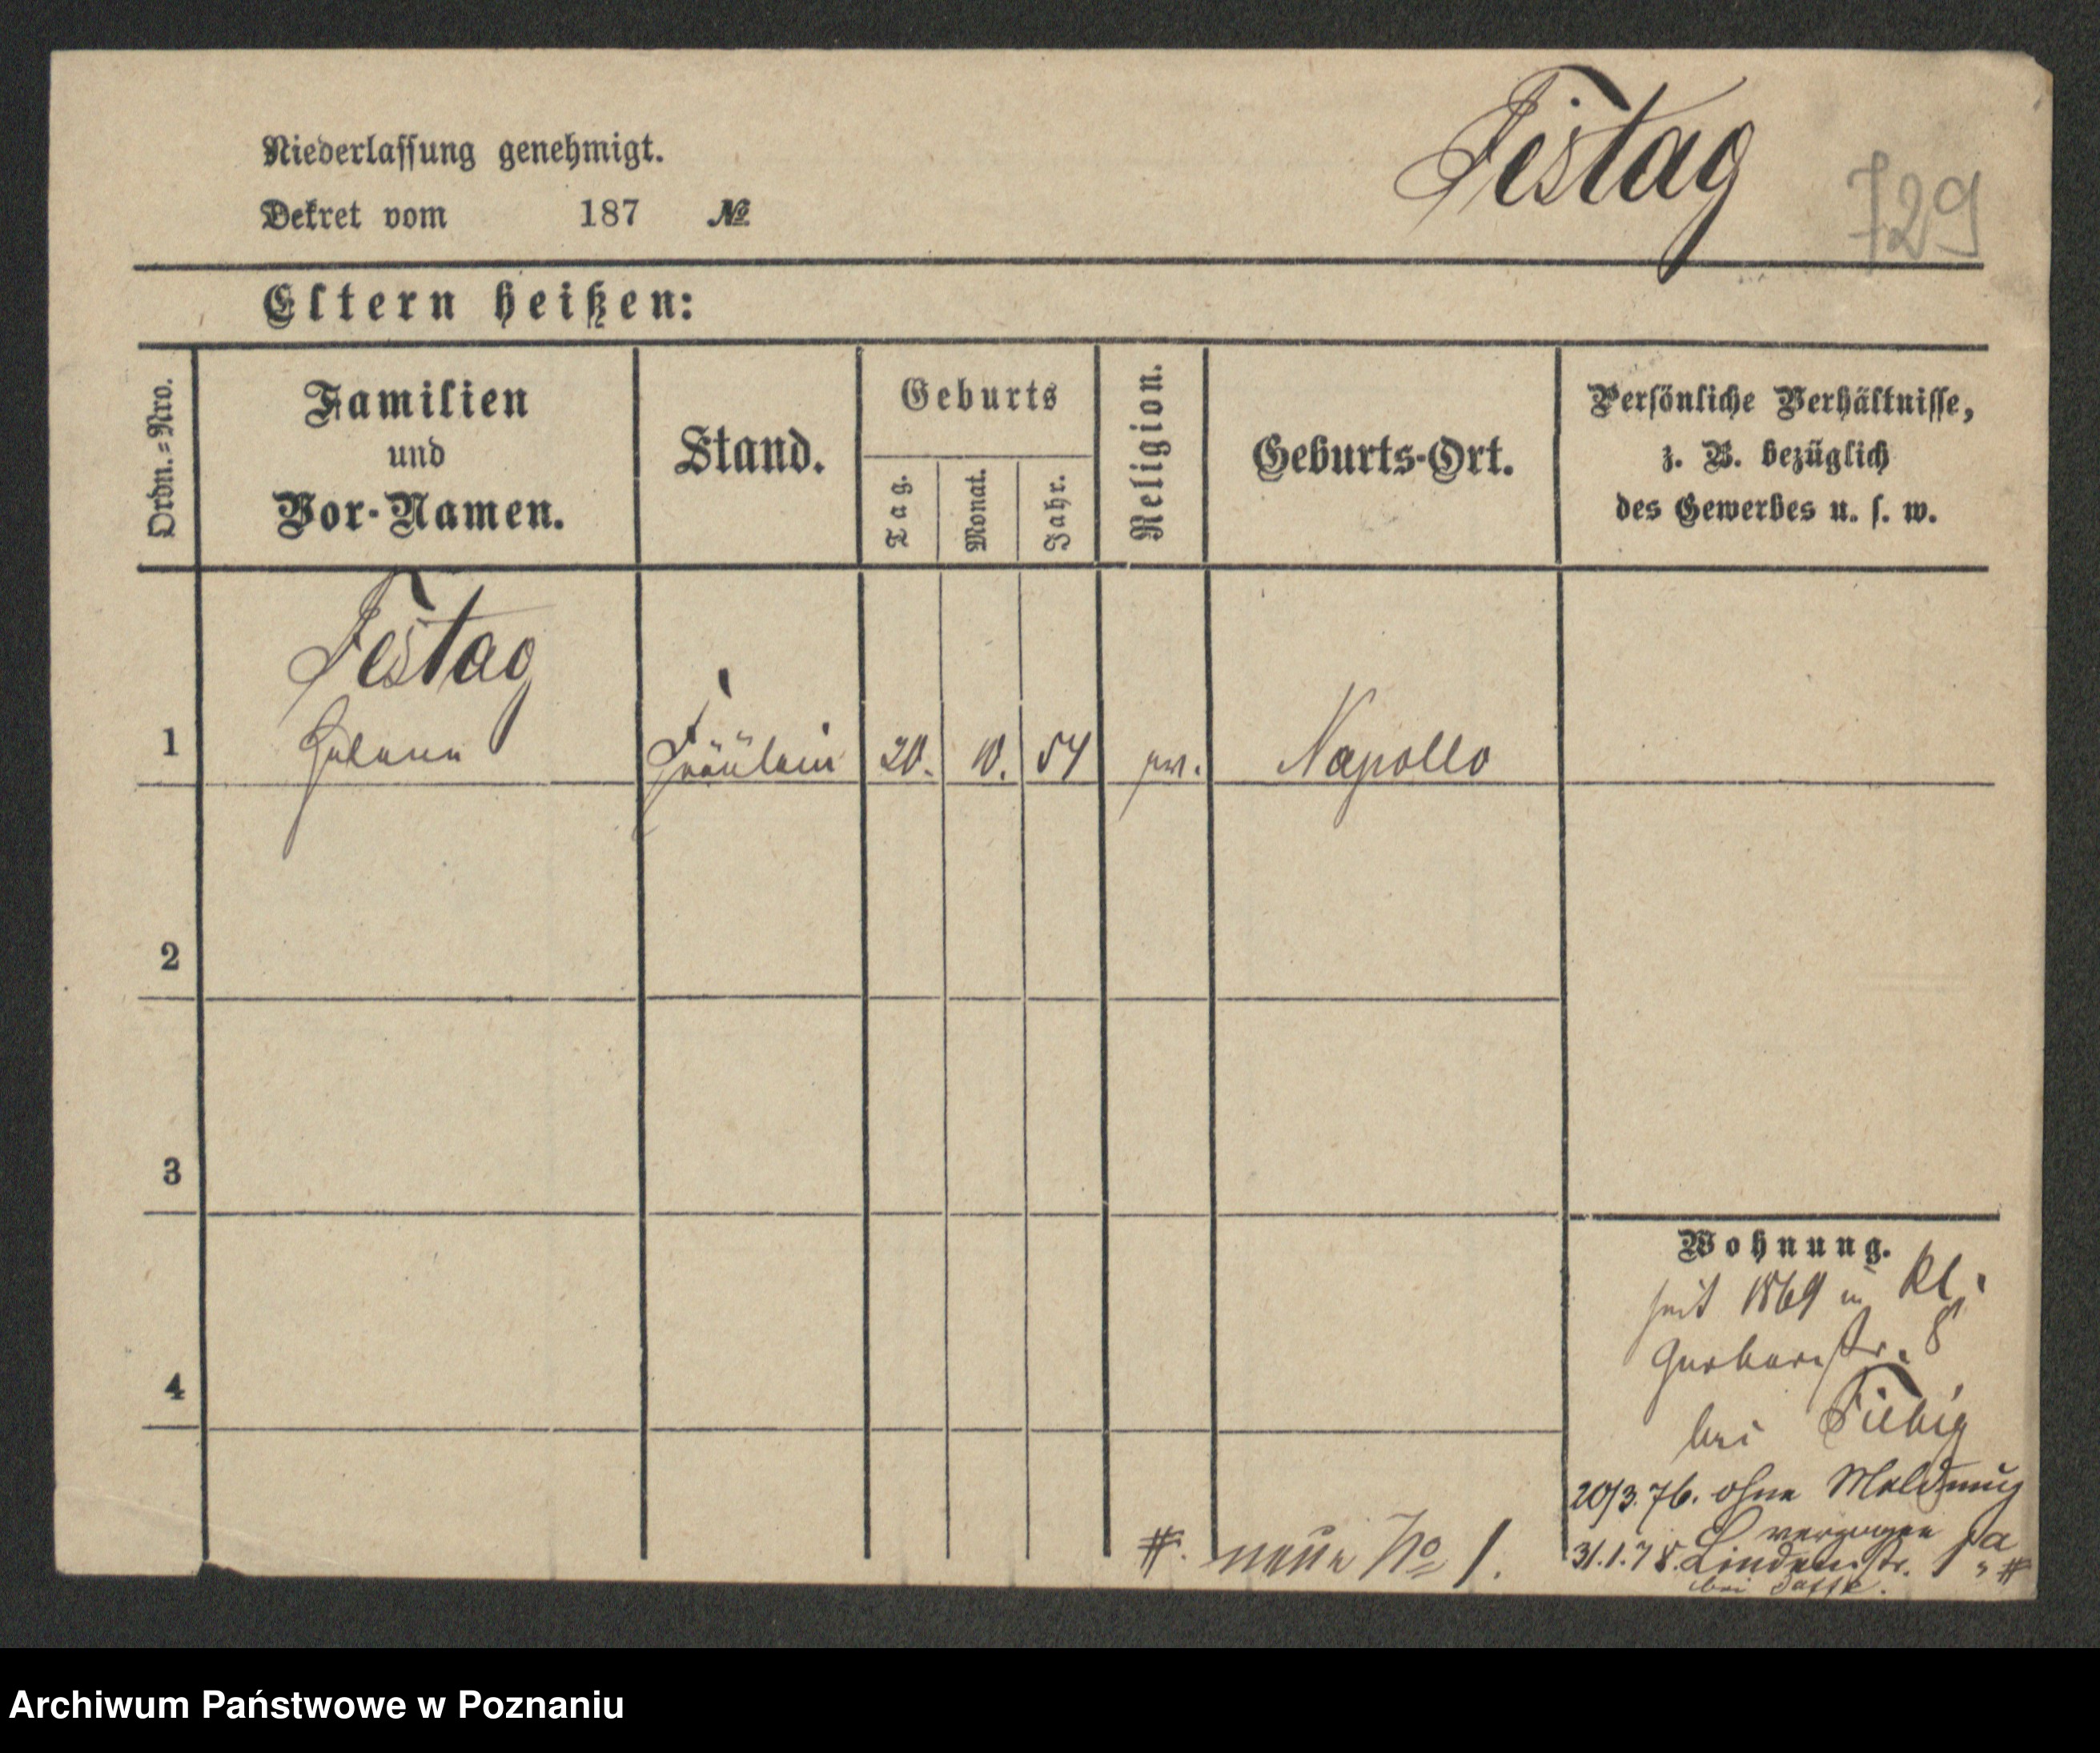 Niederlassung genehmigt.
Dekret vom 187 №
Festag
729
Eltern heißen:
Ordn.=Nro.
Familien
und
Vor-Namen.
Stand.
Geburts
Tag.
Monat.
Jahr.
Religion.
Geburts-Ort.
Persönliche Verhältnisse,
z. B. bezüglich
des Gewerbes u. s. w.
Festag
1
Fräulein
20.
10.
54
Napollo
2
3
4
Wohnung.
seit 1869 in Kl.
Gerberstr. 8
bei Fiebig
20/3. 76. ohne Meldung
verzogen
31.1.78. Lindenstr. 1a #
bei
#. neue No 1.
Archiwum Państwowe w Poznaniu